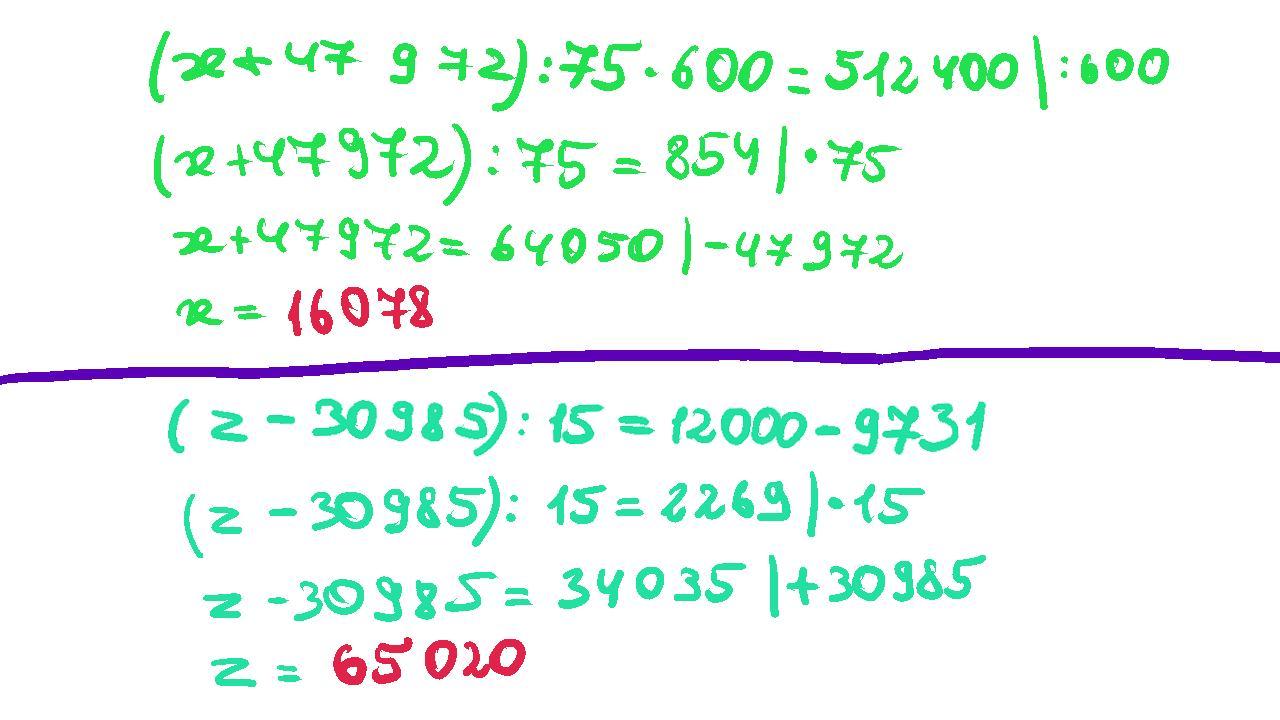 (x+47 972):75·600=512400|:600
(x+47972):75=854|·75
x+47972=64050|-47972
x=16078
(z-30985):15=12000-9731
(z-30985):15=2269|·15
z-30985=34035|+30985
z=65020